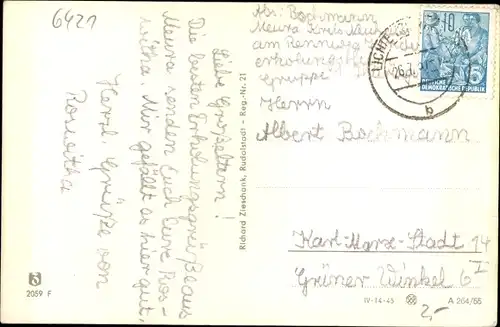 6421
Liebe Großeltern!
Die besten Erholungsgrüße aus
Meura senden Euch Eure Ros-
witha. Mir gefällt es hier gut.
Herzl. Grüße von
Roswitha
2059 F
Richard Zieschank, Rudolstadt - Reg.-Nr. 21
Abs.: Bochmann
Meura Kreis
am Rennsteig
erholungs
gruppe
LICHTE
26.7.
b
10
DEUTSCHE
DEMOKRATISCHE REPUBLIK
Herrn
Albert Bochmann
Karl-Marx-Stadt 14
Grüner Winkel 6 I
IV-14-45
A 264/55
2,-